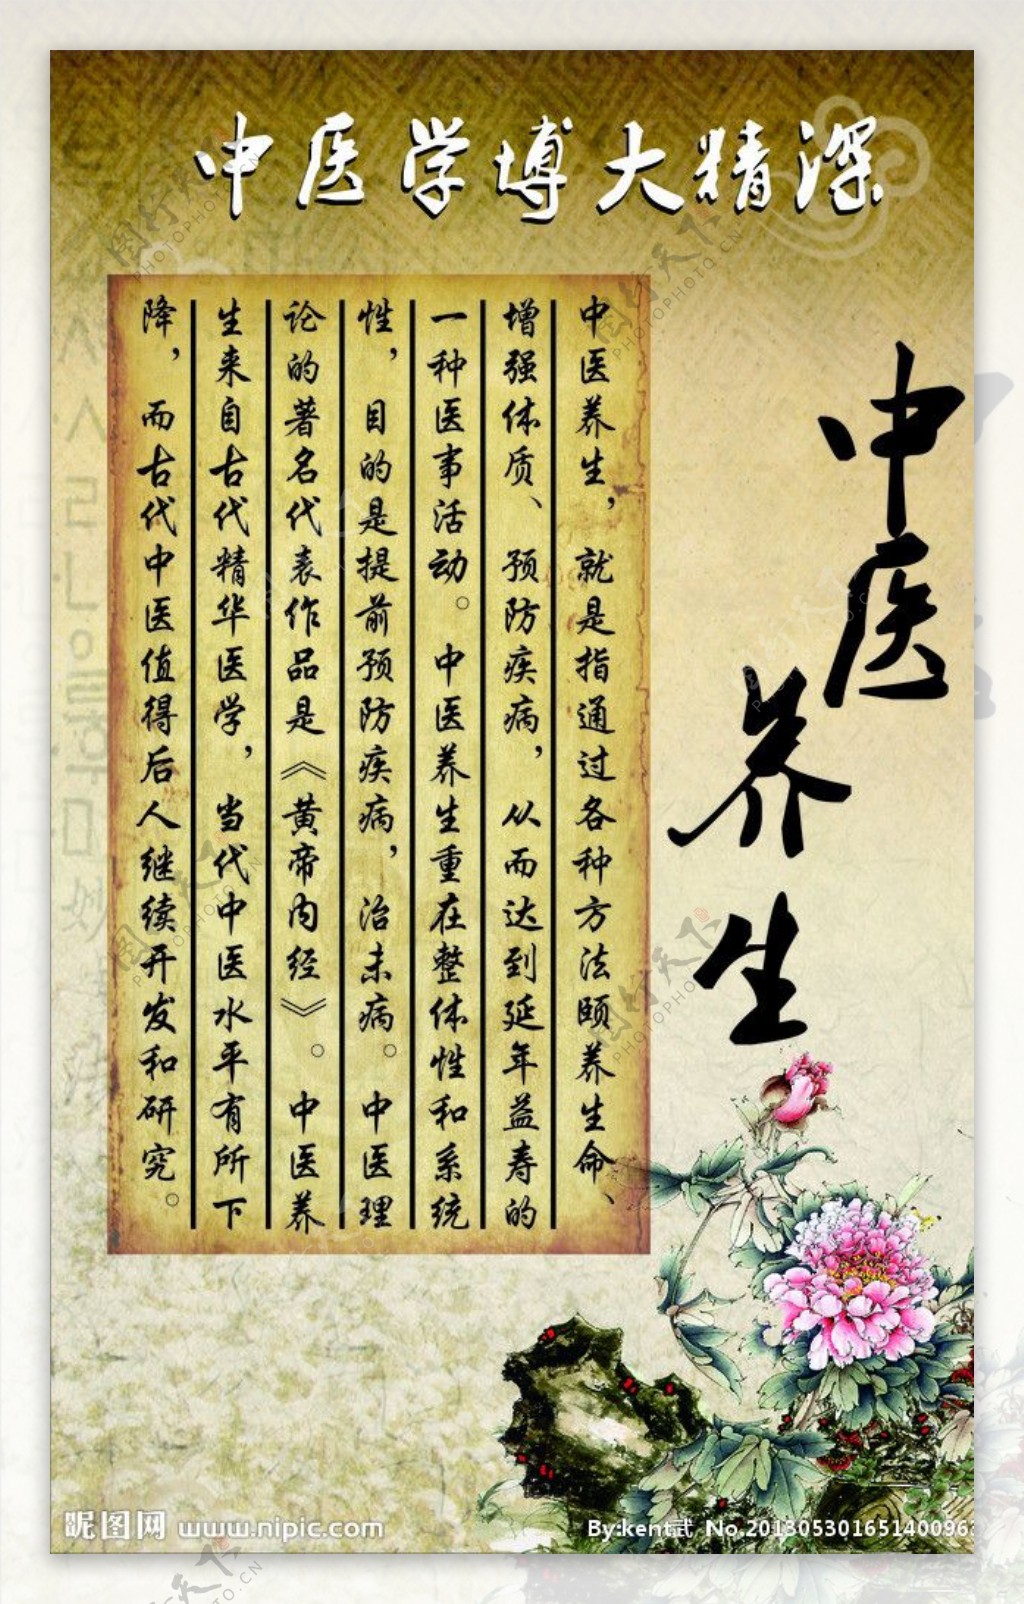 中医学博大精深
中医养生
中医养生，就是指通过各种方法颐养生命、
增强体质、预防疾病，从而达到延年益寿的
一种医事活动。中医养生重在整体性和系统
性，目的是提前预防疾病，治未病。中医理
论的著名代表作品是《黄帝内经》。中医养
生来自古代精华医学，当代中医水平有所下
降，而古代中医值得后人继续开发和研究。
昵图网 www.nipic.com
By:kent式 No.20130530165140096